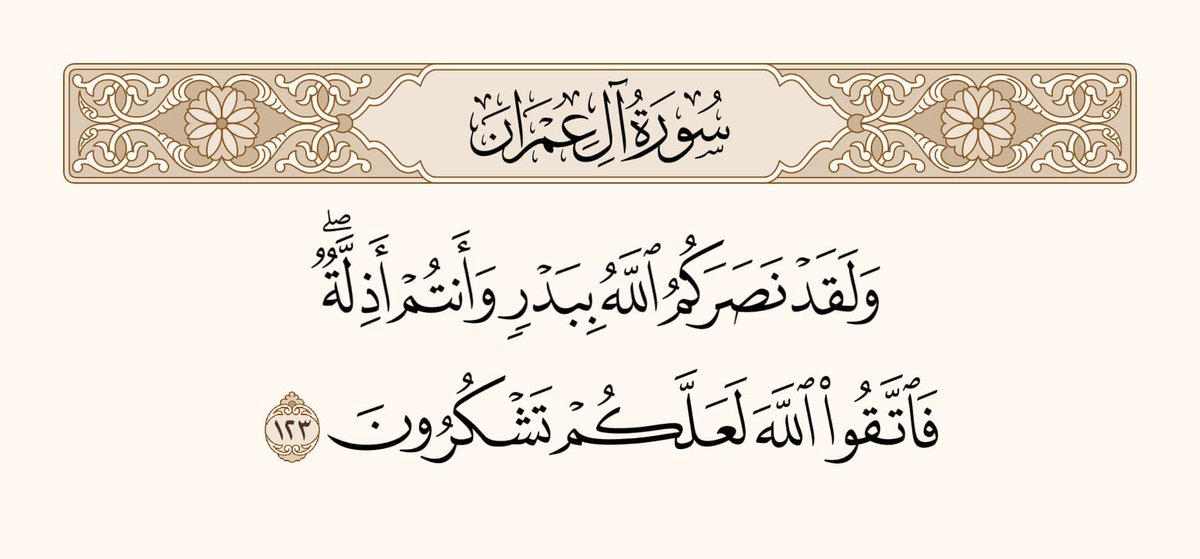 سُورَةُ آلِ عِمْرَانَ
وَلَقَدۡ نَصَرَكُمُ ٱللَّهُ بِبَدۡرٖ وَأَنتُمۡ أَذِلَّةٞۖ
فَٱتَّقُواْ ٱللَّهَ لَعَلَّكُمۡ تَشۡكُرُونَ ١٢٣